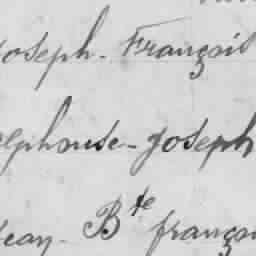 Joseph. François
Alphonse-Joseph
Jean. Bte françois